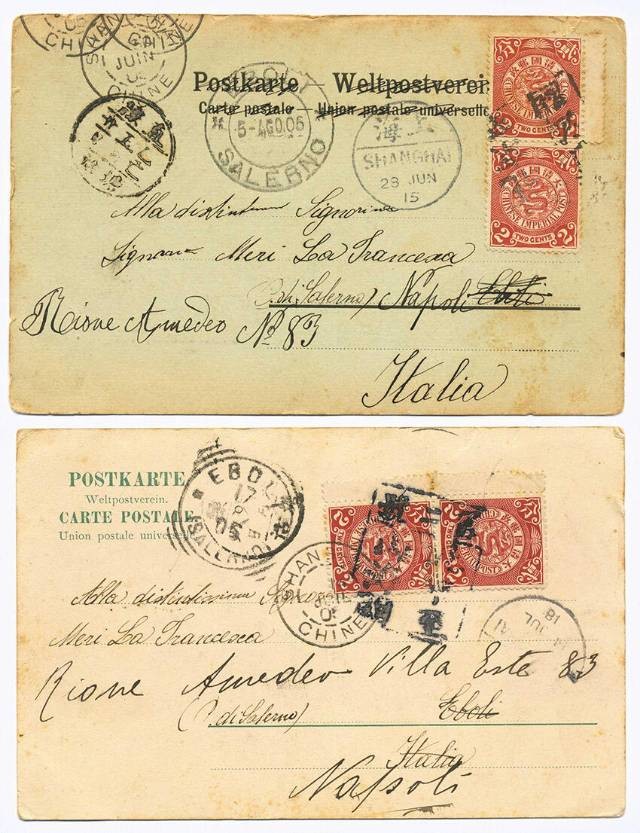 CHINE
SHANGHAI
JUIN
CHINE
Postkarte — Weltpostverein.
Carte postale — Union postale universelle
5-AGO.05
SALERNO
上海
SHANGHAI
28 JUN
15
TWO CENTS
CHINESE IMPERIAL POST
2 TWO CENTS 2
Alla distintissima Signorina
Signorina Meri La Francesca
(P. di Salerno) Napoli Eboli
Rione Amedeo No 83
Italia
POSTKARTE
Weltpostverein.
CARTE POSTALE
Union postale universelle
EBOLI
17
05
(SALERNO)
2 TWO CENTS 2
2 TWO CENTS 2
CHINE
JUL
18
Alla distintissima Signorina
Meri La Francesca
Rione Amedeo Villa Este 83
(P. di Salerno) Eboli
Italia
Napoli